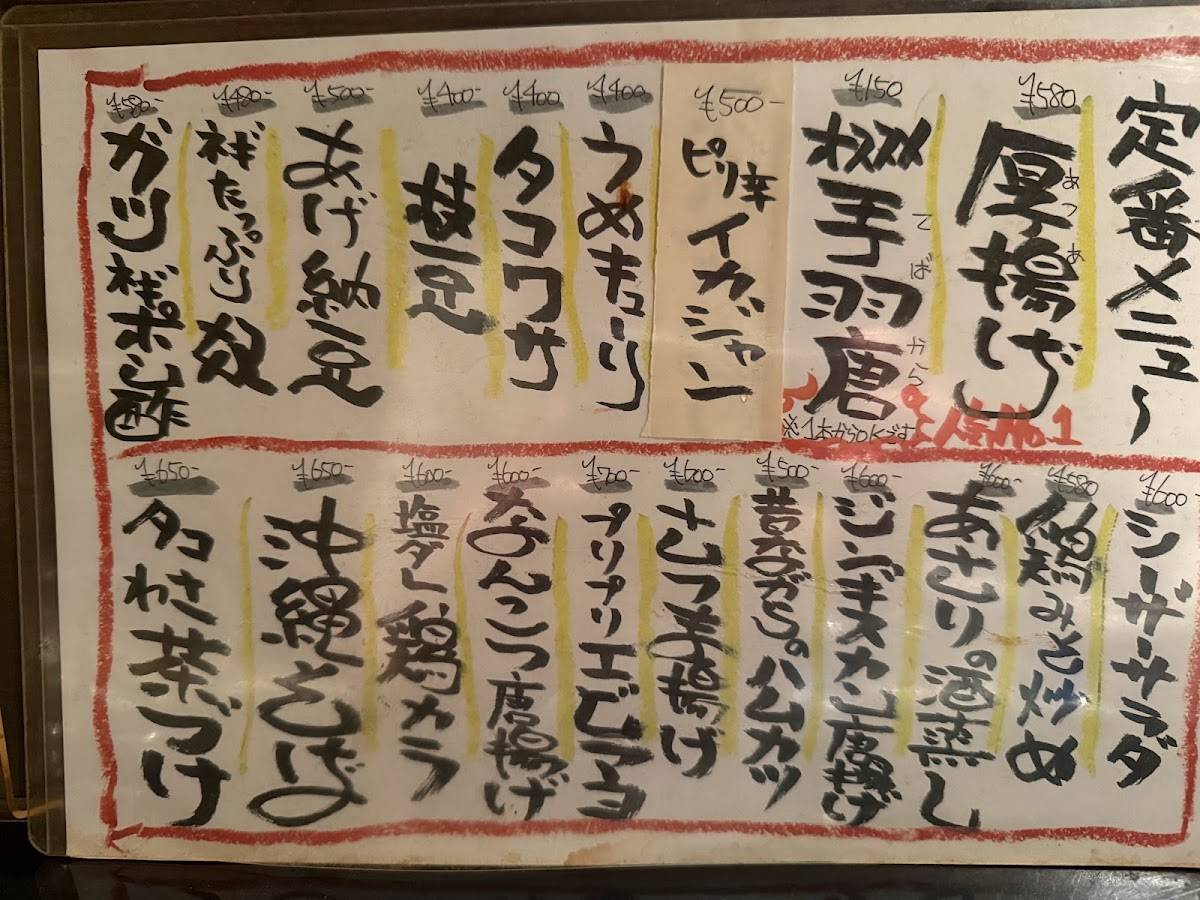 定番メニュ〜
¥580
厚揚げ
あつあ
¥150
オススメ
手羽唐
てばから
※1本からOKです
人気No.1
¥500-
ピリ辛イカジャン
¥400
うめキューリ
¥400
タコワサ
¥400-
枝豆
¥500-
あげ納豆
¥480-
ネギたっぷり奴
¥580-
ガツネギポン酢
¥600
シーザーサラダ
¥580
鶏みそ炒め
¥600-
あさりの酒蒸し
¥600-
ジンギスカン唐揚げ
¥500-
昔ながらのハムカツ
なんこつ唐揚げ
¥600-
プリプリエビマヨ
¥600-
塩ダレ鶏カラ
¥650-
沖縄そば
¥650-
タコわさ茶づけ